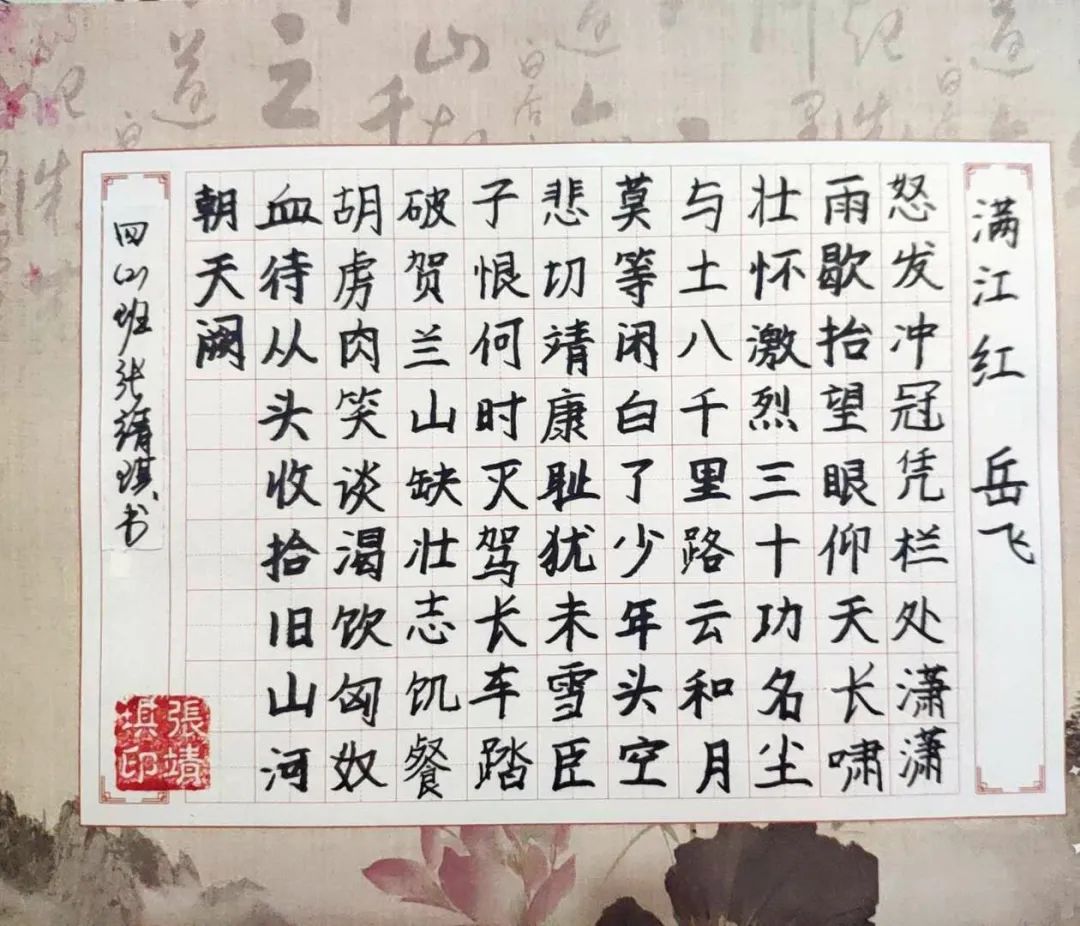 满江红 岳飞
怒发冲冠凭栏处潇潇
雨歇抬望眼仰天长啸
壮怀激烈三十功名尘
与土八千里路云和月
莫等闲白了少年头空
悲切靖康耻犹未雪臣
子恨何时灭驾长车踏
破贺兰山缺壮志饥餐
胡虏肉笑谈渴饮匈奴
血待从头收拾旧山河
朝天阙
四(1)班张靖琪书
張靖
琪印